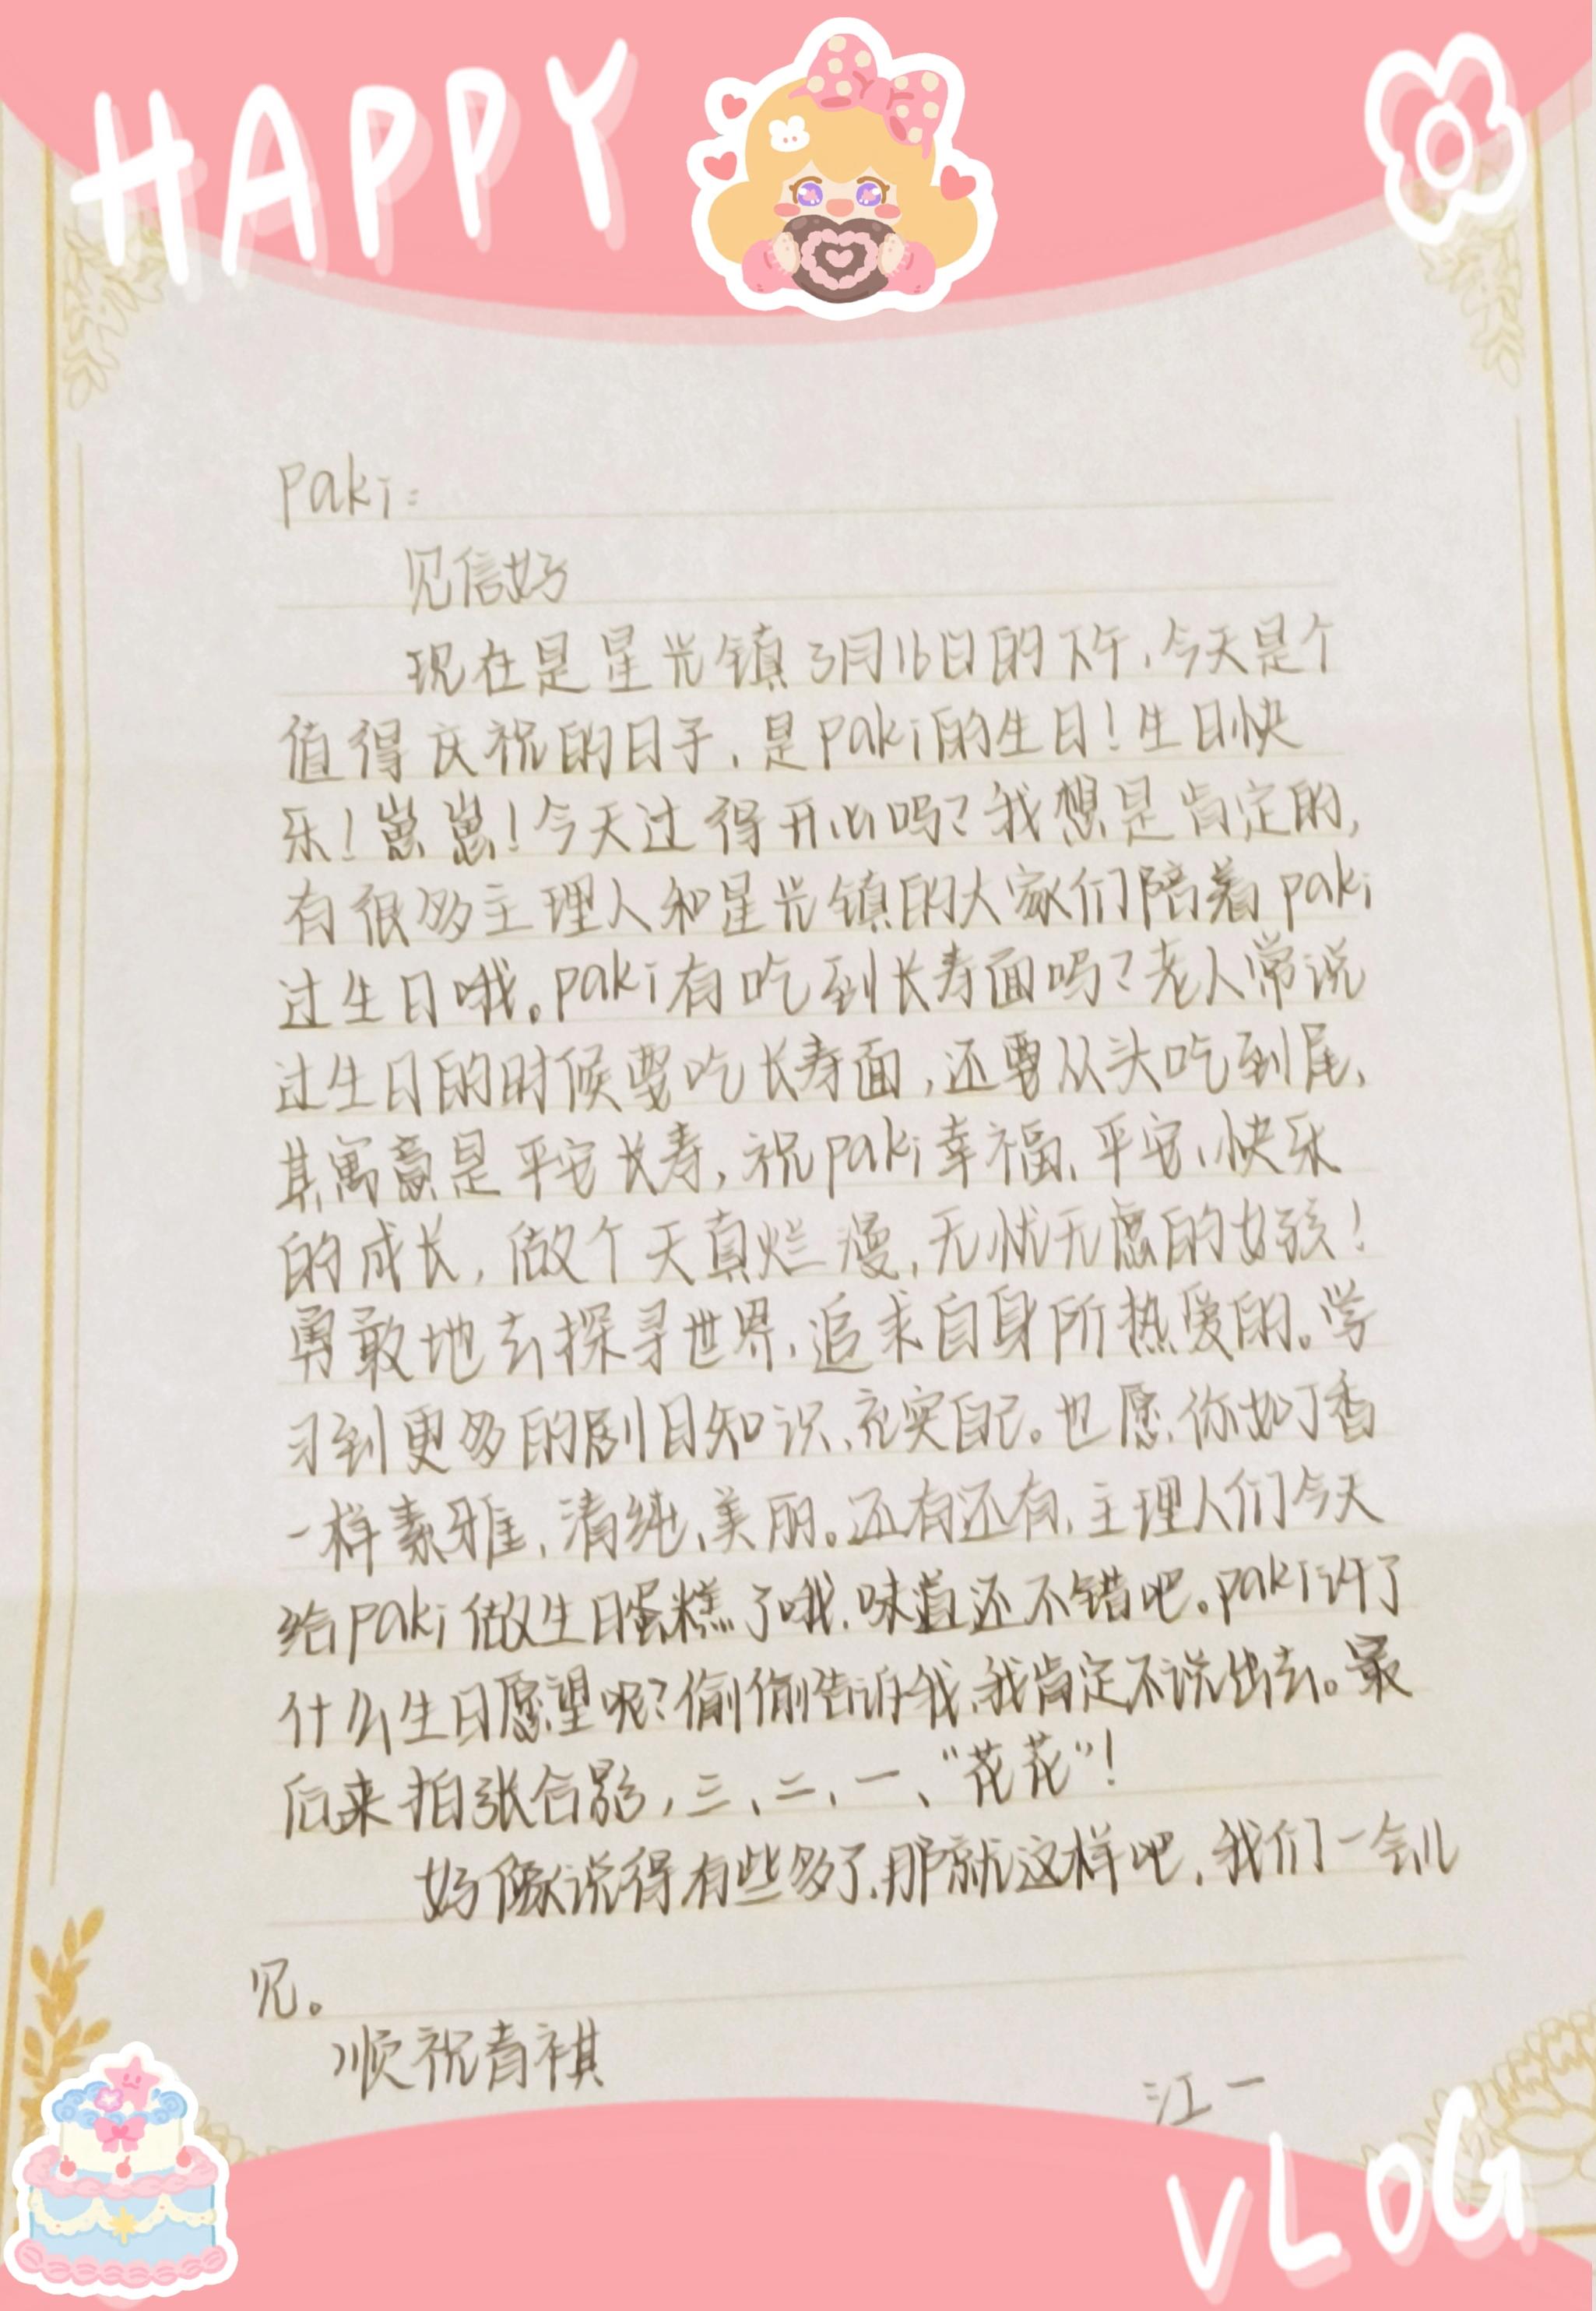 HAPPY
paki：
见信好
现在是星光镇3月16日的下午，今天是个
值得庆祝的日子，是paki的生日！生日快
乐！崽崽！今天过得开心吗？我想是肯定的，
有很多主理人和星光镇的大家们陪着paki
过生日哦。paki有吃到长寿面吗？老人常说
过生日的时候要吃长寿面，还要从头吃到尾，
其寓意是平安长寿，祝paki幸福、平安、快乐
的成长，做个天真烂漫、无忧无虑的女孩！
勇敢地去探寻世界，追求自身所热爱的。学
习到更多的剧目知识，充实自己。也愿你如丁香
一样素雅、清纯、美丽。还有还有，主理人们今天
给paki做生日蛋糕了哦，味道还不错吧。paki许了
什么生日愿望呢？偷偷告诉我，我肯定不说出去。最
后来拍张合影，三、二、一、“花花”！
好像说得有些多了，那就这样吧，我们一会儿
见。
顺祝青祺
江一
VLOG